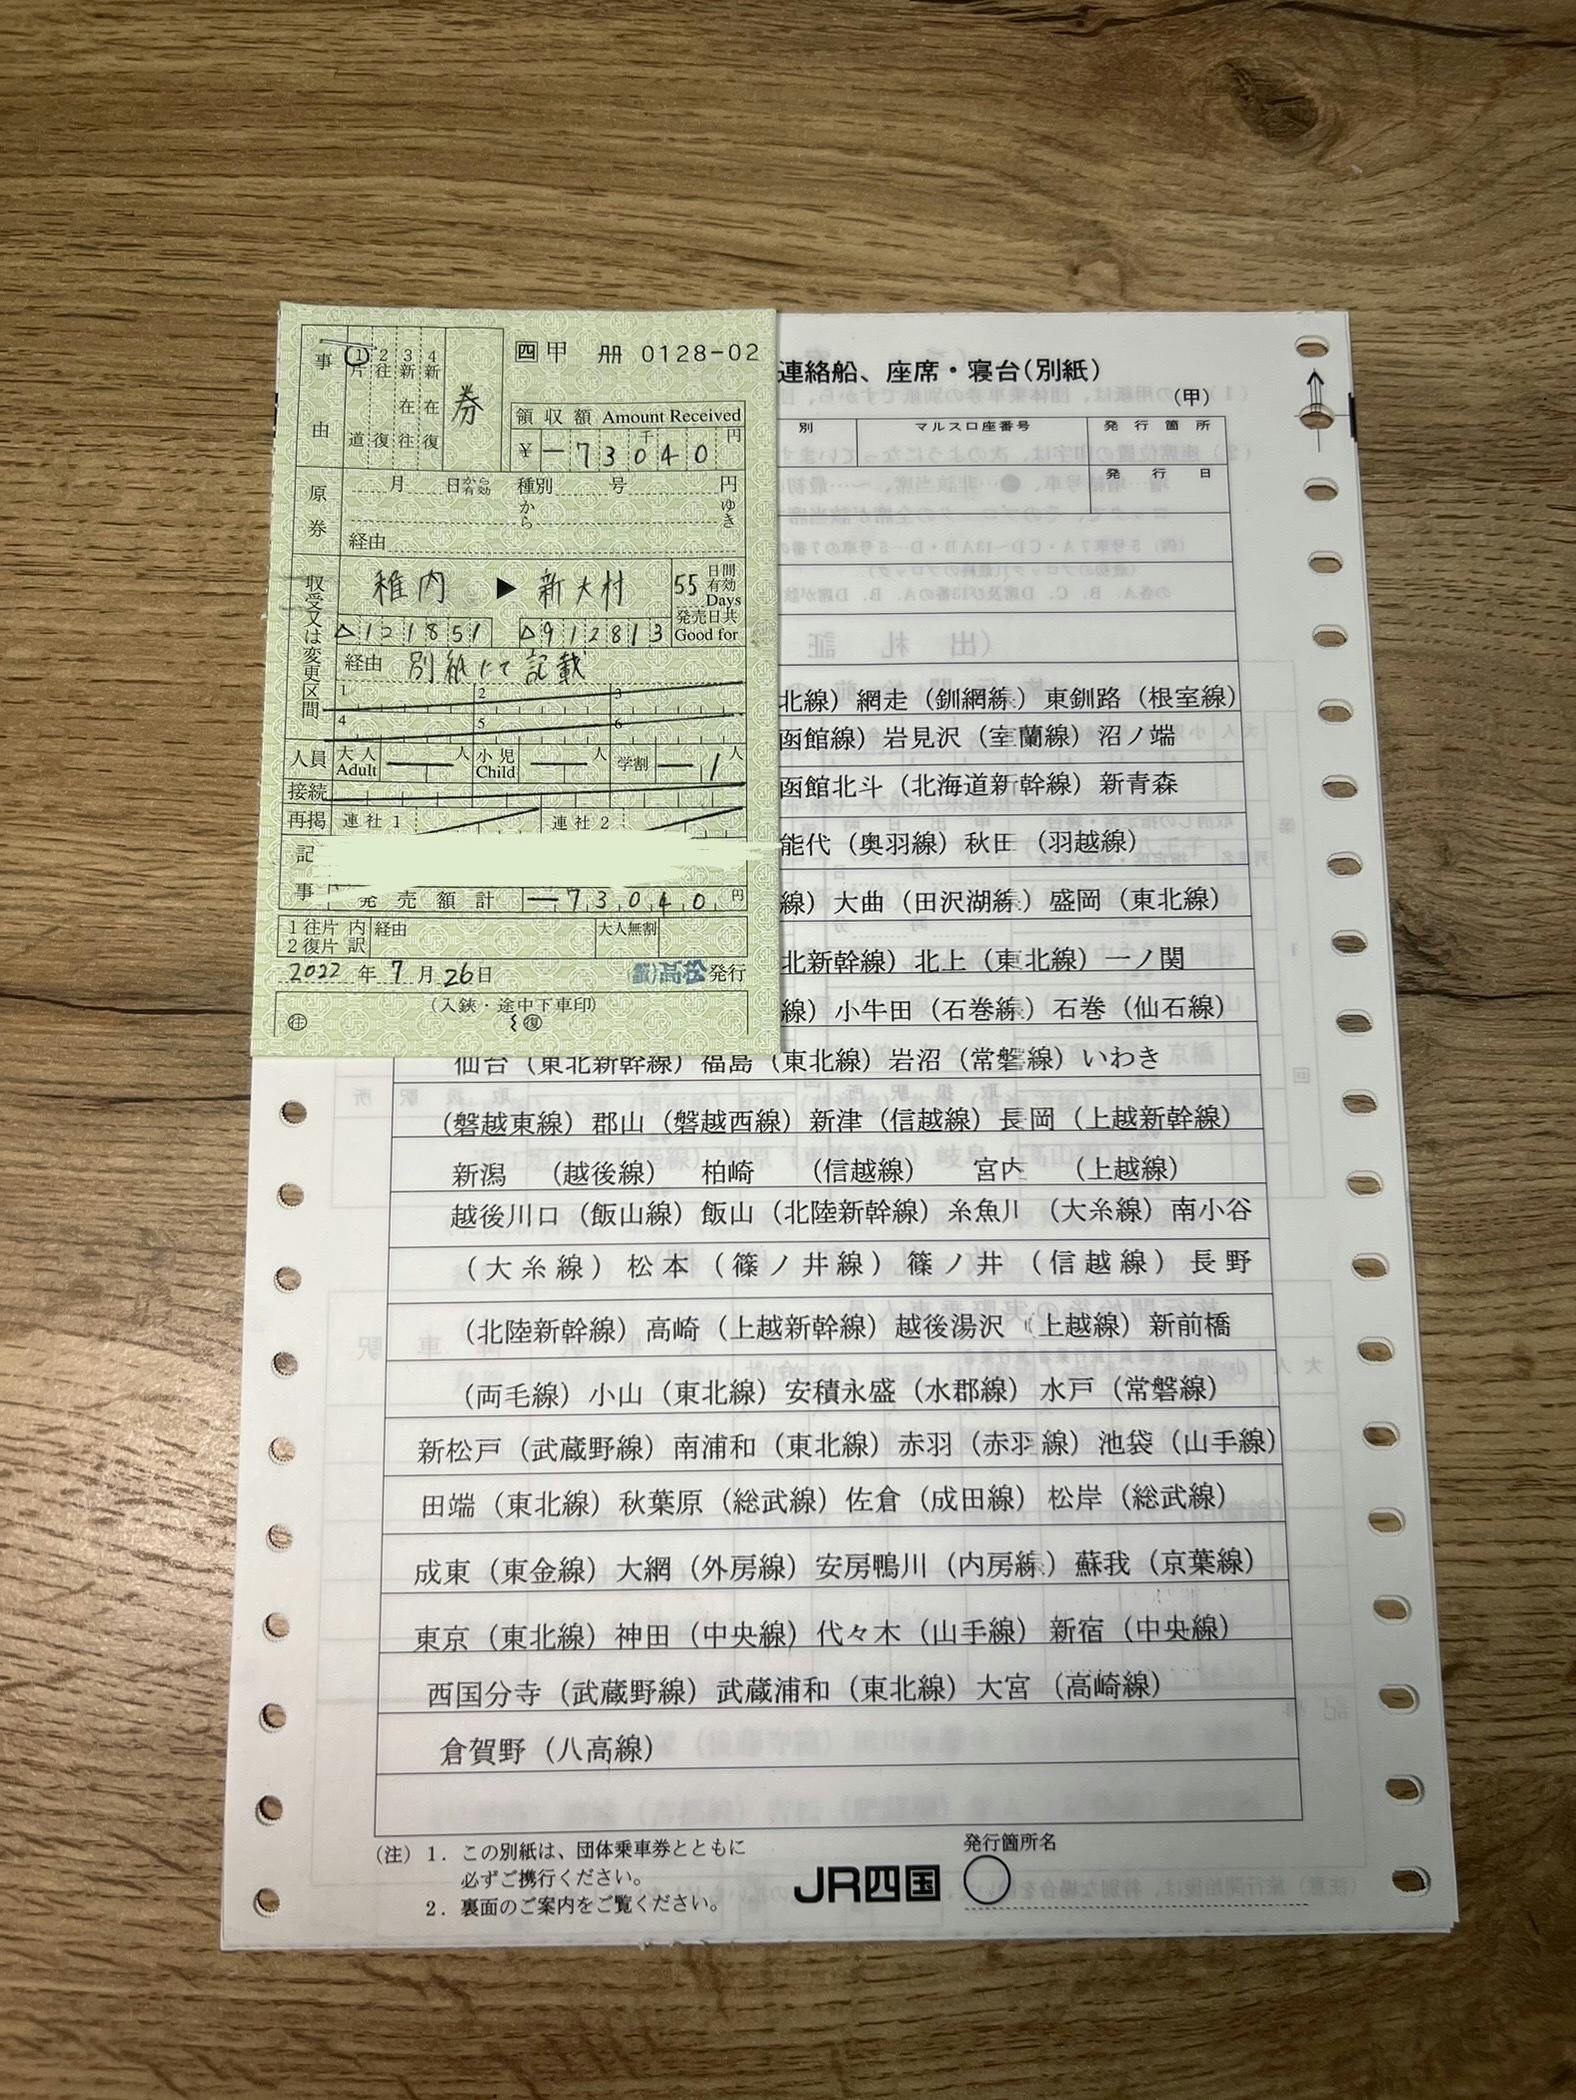 事由
1 片道
2 往復
3 新在往
4 新在復
券
四 甲 册 0128-02
領収額 Amount Received
¥ -73040 千 円
原券
月 日から有効 種別 号 円
から ゆき
経由
収受又は変更区間
稚内 ▶ 新大村
55 日間有効 Days
発売日共 Good for
△121851 △912813
経由 別紙にて記載
1 2 3
4 5 6
人員 大人 Adult 人 小児 Child 人 学割 1 人
接続
再掲 連社1 連社2
記事
発売額計 -73040円
1 往片 2 復片 内訳 経由 大人無割
2022年7月26日 発行
(入鋏・途中下車印)
往 復
連絡船、座席・寝台(別紙)
(甲)
別 マルス口座番号 発行箇所
発行日
北線)網走(釧網線)東釧路(根室線)
函館線)岩見沢(室蘭線)沼ノ端
函館北斗(北海道新幹線)新青森
能代(奥羽線)秋田(羽越線)
線)大曲(田沢湖線)盛岡(東北線)
北新幹線)北上(東北線)一ノ関
線)小牛田(石巻線)石巻(仙石線)
仙台(東北新幹線)福島(東北線)岩沼(常磐線)いわき
(磐越東線)郡山(磐越西線)新津(信越線)長岡(上越新幹線)
新潟 (越後線) 柏崎 (信越線) 宮内 (上越線)
越後川口(飯山線)飯山(北陸新幹線)糸魚川(大糸線)南小谷
(大糸線)松本(篠ノ井線)篠ノ井(信越線)長野
(北陸新幹線)高崎(上越新幹線)越後湯沢(上越線)新前橋
(両毛線)小山(東北線)安積永盛(水郡線)水戸(常磐線)
新松戸(武蔵野線)南浦和(東北線)赤羽(赤羽線)池袋(山手線)
田端(東北線)秋葉原(総武線)佐倉(成田線)松岸(総武線)
成東(東金線)大網(外房線)安房鴨川(内房線)蘇我(京葉線)
東京(東北線)神田(中央線)代々木(山手線)新宿(中央線)
西国分寺(武蔵野線)武蔵浦和(東北線)大宮(高崎線)
倉賀野(八高線)
(注)1.この別紙は、団体乗車券とともに
必ずご携行ください。
2.裏面のご案内をご覧ください。
JR四国
発行箇所名